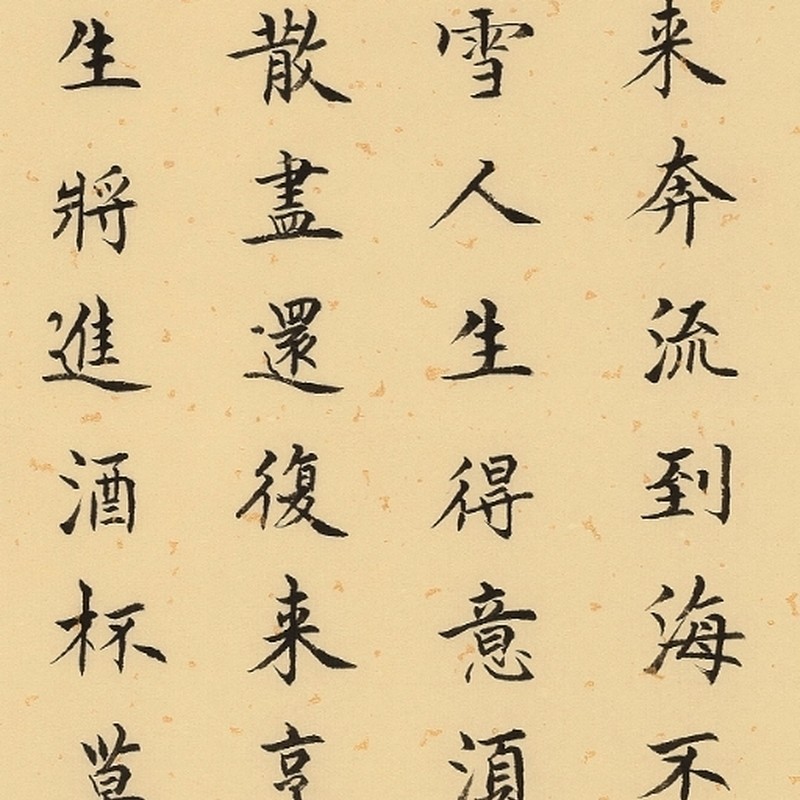 来奔流到海不
雪人生得意須
散盡還復来亨
生將進酒杯莫